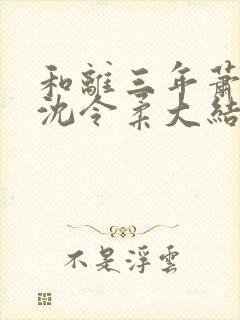 和離三年蕭
沈令柔大結
不是浮雲